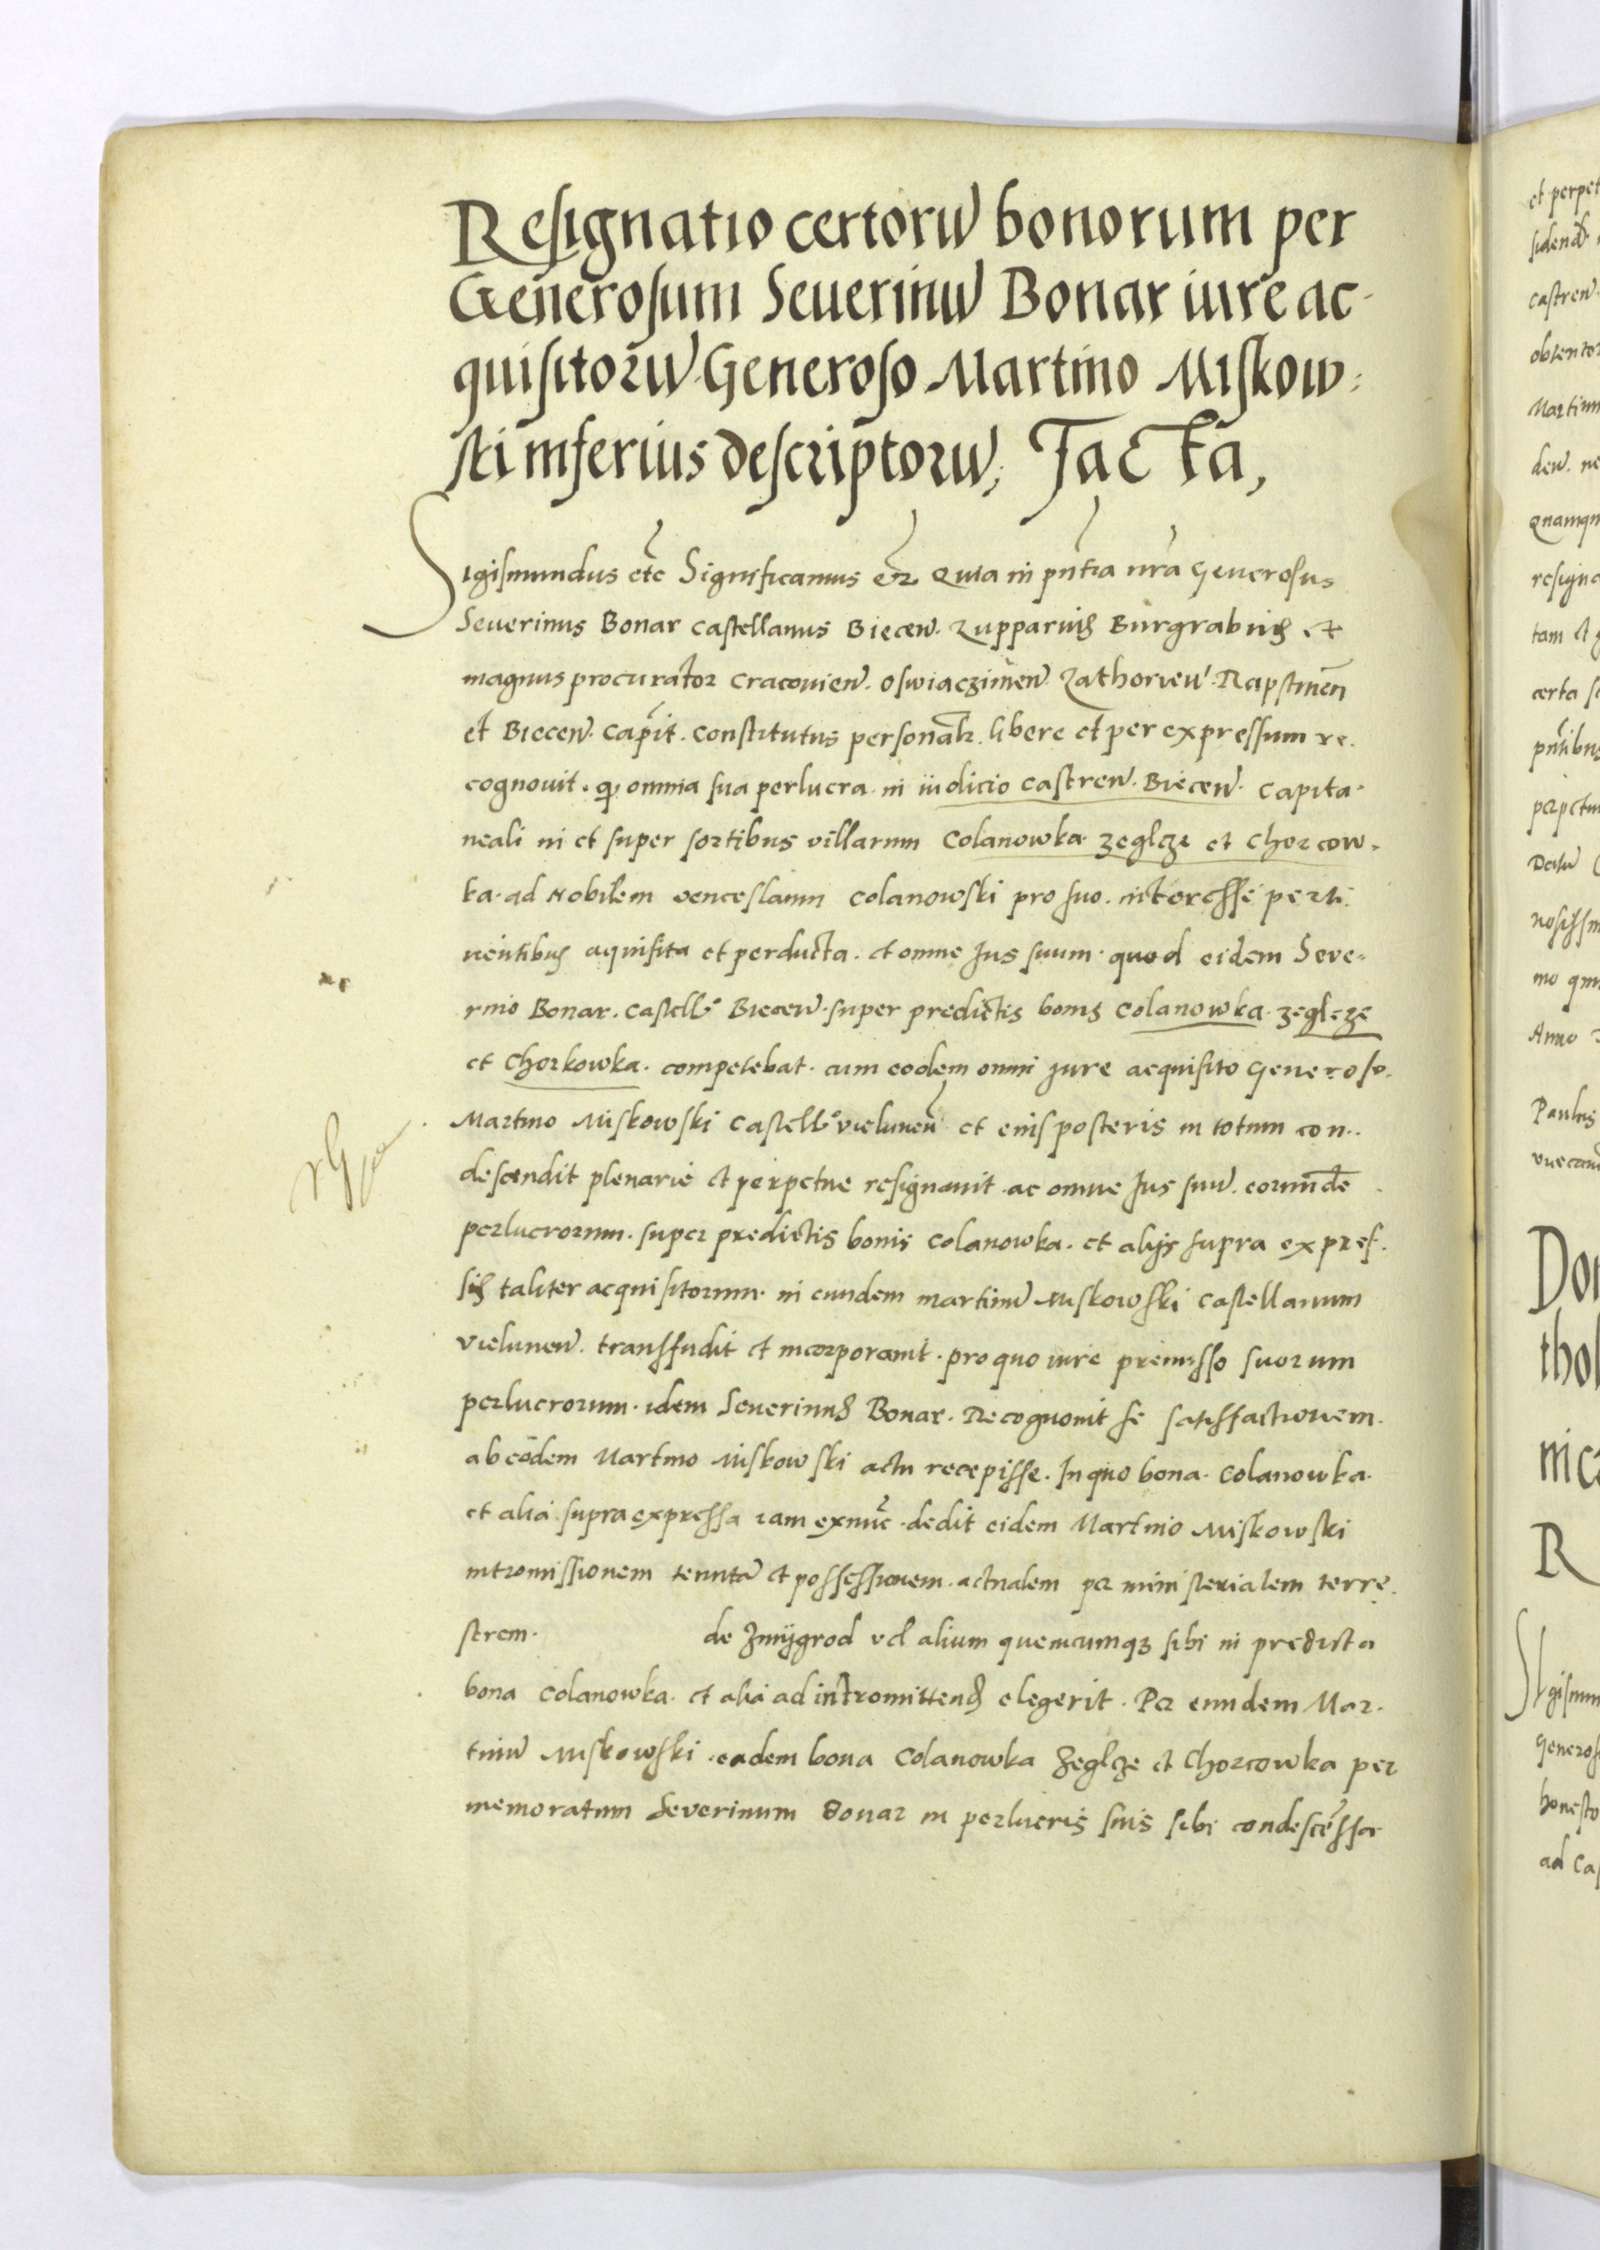 Resignatio certorũ bonorum per
Generosum Seuerinũ Bonar iure ac-
quisitorũ Generoso Martino Miskow-
ski inferius descriptorũ, facta,
Sigismundus etc̃ Significamus etc̃ Quia in pñtia nr̃a Generosus
Severinus Bonar castellanus Biecen̄. Zupparius Burgrabius et
magnus procurator Cracovien̄. Oswiaczimen̄ Zathorien̄. Rapstinen̄
et Biecen̄. Capit̄. Constitutus personalr̄. libere et per expressum re.
cognovit. q, omnia sua perlucra. in iudicio castren̄. Biecen̄. Capita-
neali in et super sortibus villarum Colanowka. zeglcze et Chorcow-
ka. ad Nobilem venceslaum Colanowski pro suo. interesse perti.
nentibus aquisita et perducta. et omne Jus suum. quod eidem Seve-
rino Bonar. castellº Biecen̄. super predictis bonis Colanowka. zeglcze
et Chorkowka. competebat. cum eodem omni jure acquisito Generoso.
Martino Miskowski castellº vielunen̄ et eius posteris in totum con..
descendit plenarie et perpetue resignavit. ac omne Jus suũ. eorundē
perlucrorum. super predictis bonis Colanowka. et alijs supra expres.
sis taliter acquisitorum. in eundem martinũ Miskowski castellanum
vielunen̄. transfudit et incorporavit. pro quo iure premisso suorum
perlucrorum. idem Severinus Bonar. Recognovit se satisfactionem.
ab eodem Martino Miskowski actu recepisse. In quo bona. Colanowka.
et alia. supra expressa iam exnūc. dedit eidem Martino Miskowski
intromissionem tenutã et possessionem. actualem per ministerialem terre.
strem. de Zmijgrod vel alium quemcumqz sibi in predicta
bona Colanowka. et alia ad intromittend elegerit. Per eundem Mar.
tinũ Miskowski. eadem bona Colanowka Zeglcze et Chorcowka per
memoratum Severinum Bonar in perlucris suis sibi condescēssa